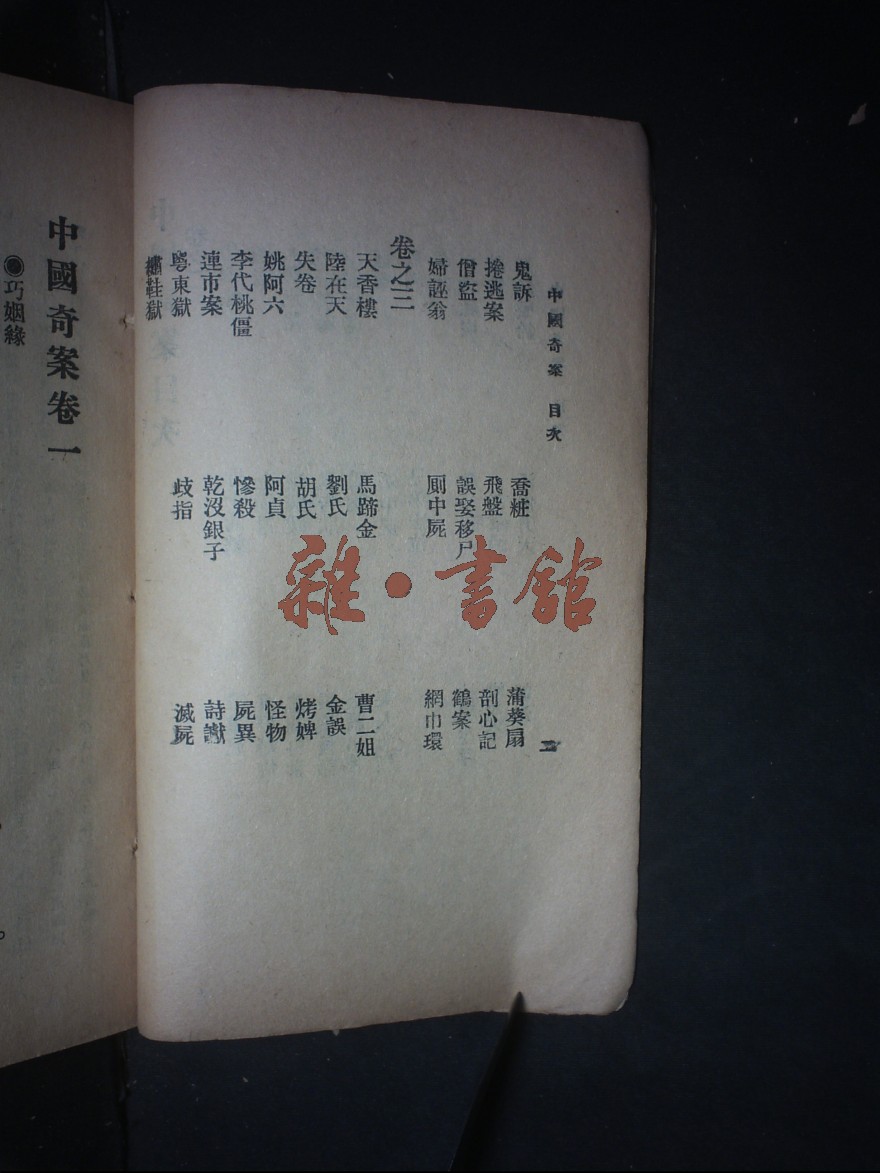 中國奇案 目次 二
鬼訴 喬粧 蒲葵扇
捲逃案 飛盤 剖心記
僧盜 誤娶移尸 鶴案
婦誣翁 厠中屍 網巾環
卷之三
天香樓 馬蹄金 曹二姐
陸在天 劉氏 金誤
失卷 胡氏 烤婢
姚阿六 阿貞 怪物
李代桃僵 慘殺 屍異
連市案 乾沒銀子 詩讞
粵東獄 歧指 滅屍
繡鞋獄
中國奇案卷一
◉巧姻緣
雜·書館